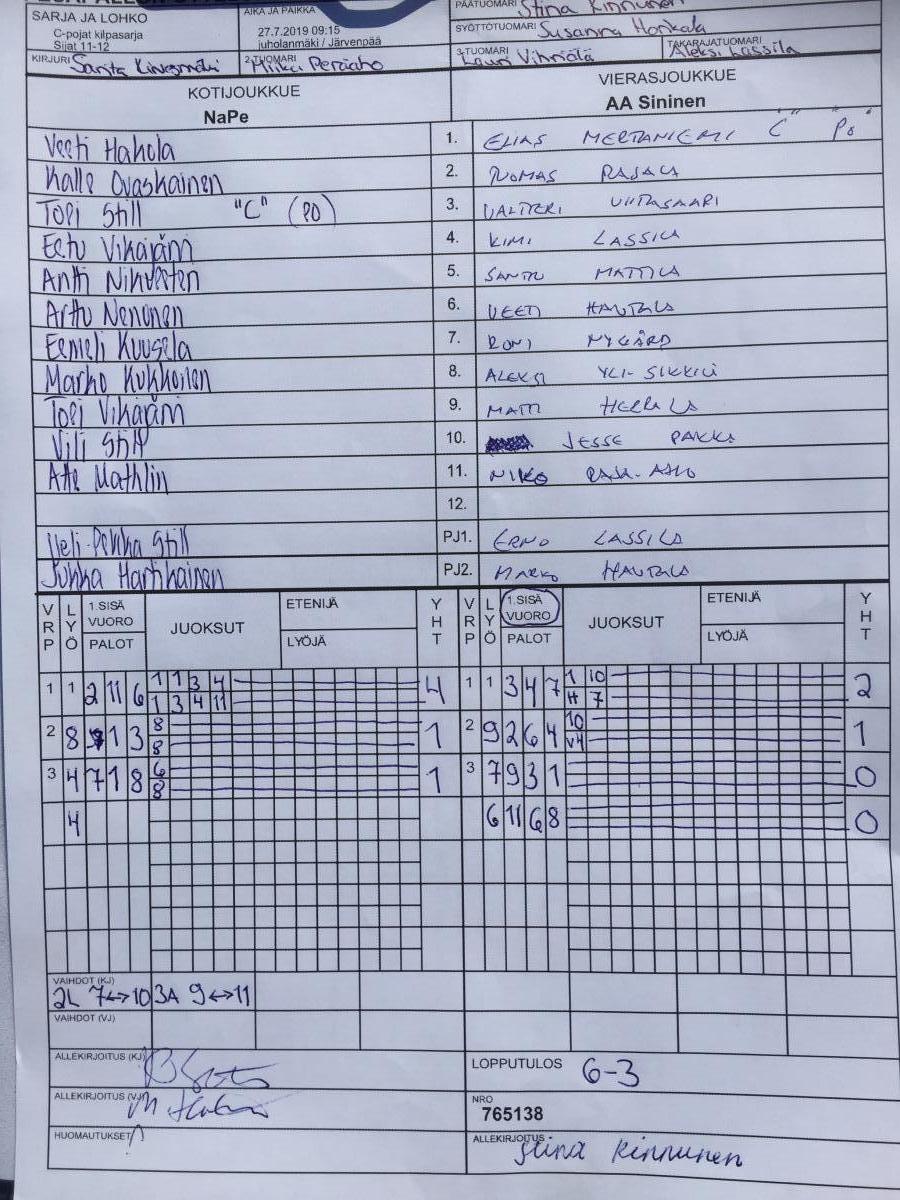 SARJA JA LOHKO
C-pojat kilpasarja
Sijat 11-12
AIKA JA PAIKKA
27.7.2019 09:15
juholanmäki / Järvenpää
PÄÄTUOMARI Stina Kinnunen
SYÖTTÖTUOMARI Susanna Honkala
KIRJURI Sarita
2.TUOMARI
3.TUOMARI Lauri Vihriälä
TAKARAJATUOMARI Aleksi Lassila
KOTIJOUKKUE
NaPe
VIERASJOUKKUE
AA Sininen
Veeti Hakola 1. ELIAS MERTANIEMI "C" "PO"
Kalle Ovaskainen 2. TUOMAS RAJALA
Topi Still "C" (PO) 3. VALTTERI VIITASAARI
Eetu Vikajärvi 4. KIMI LASSILA
Antti 5. SANTTU MATTILA
Arttu Nenonen 6. VEETI HAUTALA
Eemeli Kuusela 7. RONI NYGÅRD
Marko Kukkonen 8. ALEKSI YLI-SIKKILÄ
Topi Vikajärvi 9. MATTI HERRALA
Vili Still 10. JESSE PAKKA
Atte Mathlin 11. NIKO RAJA-AHO
12.
Veli-Pekka Still PJ1. ERNO LASSILA
Jukka Hartikainen PJ2. MARKO HAUTALA
VRP LYÖ 1.SISÄ VUORO PALOT JUOKSUT ETENIJÄ LYÖJÄ YHT VRP LYÖ 1.SISÄ VUORO PALOT JUOKSUT ETENIJÄ LYÖJÄ YHT
1 1 2 11 6 1 1 3 4 4 1 1 3 4 7 1 10 2
1 3 4 11 H 7
2 8 1 3 8 1 2 9 2 6 4 10 1
8 V4
3 4 7 1 8 6 1 3 7 9 3 1 0
8
4 6 11 6 8 0
VAIHDOT (KJ)
2L 7↔10 3A 9↔11
VAIHDOT (VJ)
ALLEKIRJOITUS (KJ)
LOPPUTULOS 6-3
ALLEKIRJOITUS (VJ)
NRO
765138
HUOMAUTUKSET
ALLEKIRJOITUS Stina Kinnunen